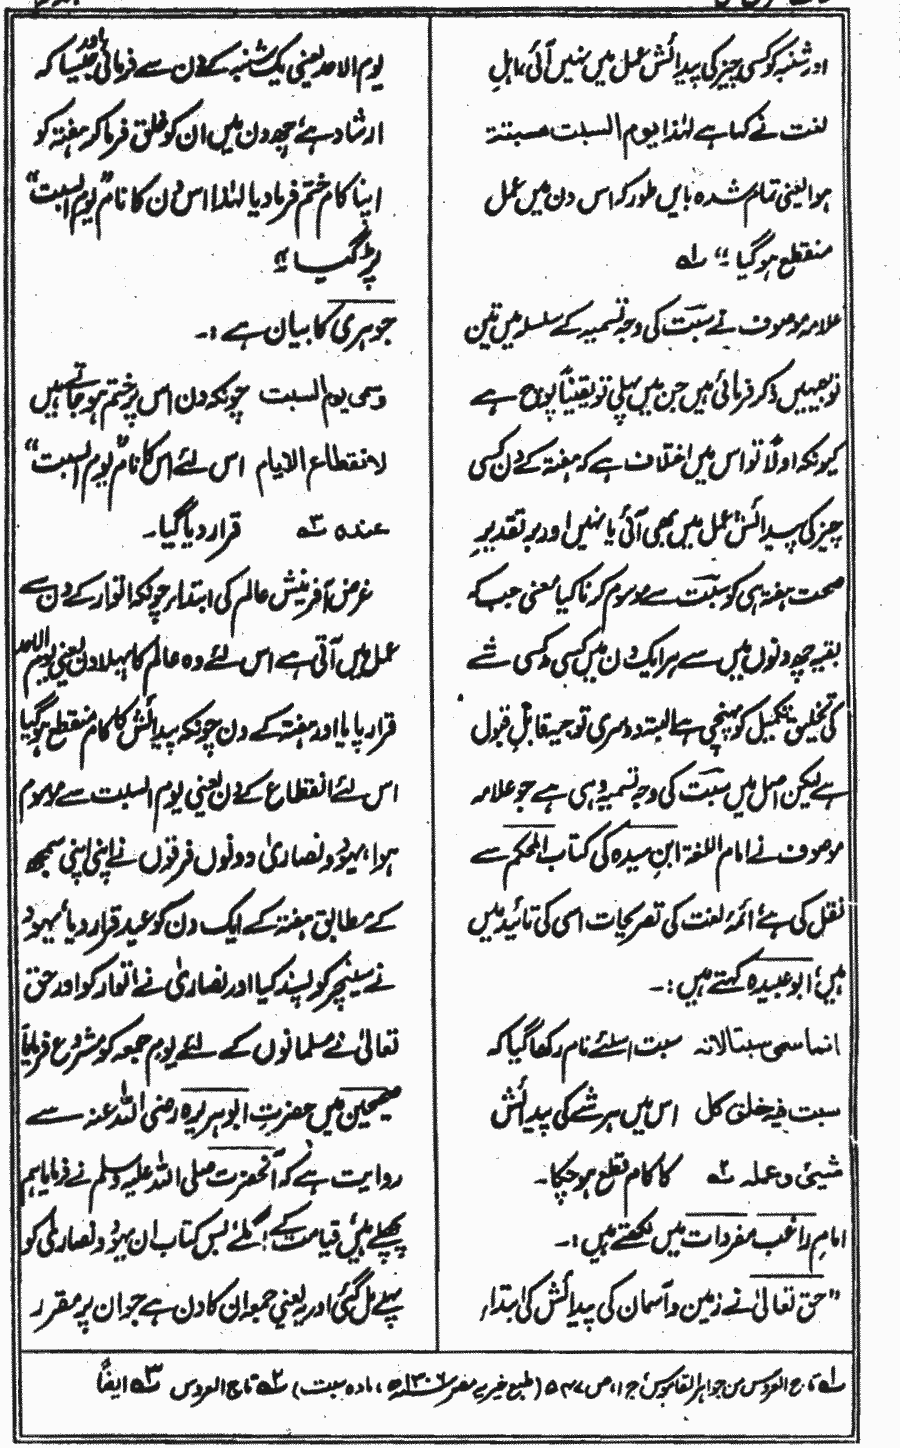 اور شنبہ کو کسی چیز کی پیدائش عمل میں نہیں آئی، اہلِ
لغت نے کہا ہے لہٰذا یوم السبت مسبتة
ہوا یعنی تمام شدہ بایں طور کہ اس دن میں عمل
منقطع ہوگیا" لہ
علامہ موصوف نے سبت کی وجہ تسمیہ کے سلسلہ میں تین
توجیہیں ذکر فرمائی ہیں جن میں پہلی تو یقیناً پوچ ہے
کیونکہ اولاً تو اس میں اختلاف ہے کہ ہفتہ کے دن کسی
چیز کی پیدائش عمل میں بھی آئی یا نہیں اور بر تقدیرِ
صحت ہفتہ ہی کو سبت سے موسوم کرنا کیا معنی جب کہ
بقیہ چھ دنوں میں سے ہر ایک دن میں کسی نہ کسی شے
کی تخلیق تکمیل کو پہنچی ہے البتہ دوسری توجیہ قابلِ قبول
ہے لیکن اصل میں سبت کی وجہ تسمیہ وہی ہے جو علامہ
موصوف نے امام اللغۃ ابنِ سیدہ کی کتاب المحکم سے
نقل کی ہے، ائمۂ لغت کی تصریحات اسی کی تائید میں
ہیں، ابو عبیدہ کہتے ہیں :۔
انما سمی سبتا لانہ سبت اسلئے نام رکھا گیا کہ
سبت فیہ خلق کل اس میں ہر شے کی پیدائش
شیئ وعملہ ۲ہ کا کام قطع ہوچکا۔
امام راغب مفردات میں لکھتے ہیں :۔
"حق تعالیٰ نے زمین و آسمان کی پیدائش کی ابتداء
یوم الاحد یعنی یک شنبہ کے دن سے فرمائی تھی اور جیسا کہ
ارشاد ہے، چھ دن میں ان کو خلق فرما کر ہفتہ کو
اپنا کام ختم فرما دیا لہٰذا اس دن کا نام "یوم السبت"
پڑ گیا" ۲ہ
جوہری کا بیان ہے :۔
وسمی یوم السبت چونکہ دن اس پر ختم ہو جاتے ہیں
لانقطاع الایام اس لئے اس کا نام "یوم السبت"
عندہ ۳ہ قرار دیا گیا۔
غرض آفرینش عالم کی ابتداء چونکہ اتوار کے دن سے
عمل میں آتی ہے اس لئے وہ عالم کا پہلا دن یعنی یوم الاحد
قرار پایا اور ہفتہ کے دن چونکہ پیدائش کا کام منقطع ہوگیا
اس لئے انقطاع کے دن یعنی یوم السبت سے موسوم
ہوا، یہود و نصاریٰ دونوں فرقوں نے اپنی اپنی سمجھ
کے مطابق ہفتہ کے ایک دن کو عید قرار دیا، یہود
نے سنیچر کو پسند کیا اور نصاریٰ نے اتوار کو اور حق
تعالیٰ نے مسلمانوں کے لئے یوم جمعہ کو مشروع فرمایا
صحیحین میں حضرت ابو ہریرہ رضی اللہ عنہ سے
روایت ہے کہ آنحضرت صلی اللہ علیہ وسلم نے فرمایا ہم
پچھلے ہیں، قیامت کے اگلے، بس کتاب ان یہود و نصاریٰ کو
پہلے مل گئی اور یہ یعنی جمعہ ان کا دن ہے جو ان پر مقرر
لہ تاج العروس من جواہر القاموس ج ۱، ص ۵۴۷ (طبع خیریہ مصر ۱۳۰۶ھ، مادہ سبت) ۲ہ تاج العروس ۳ہ ایضاً